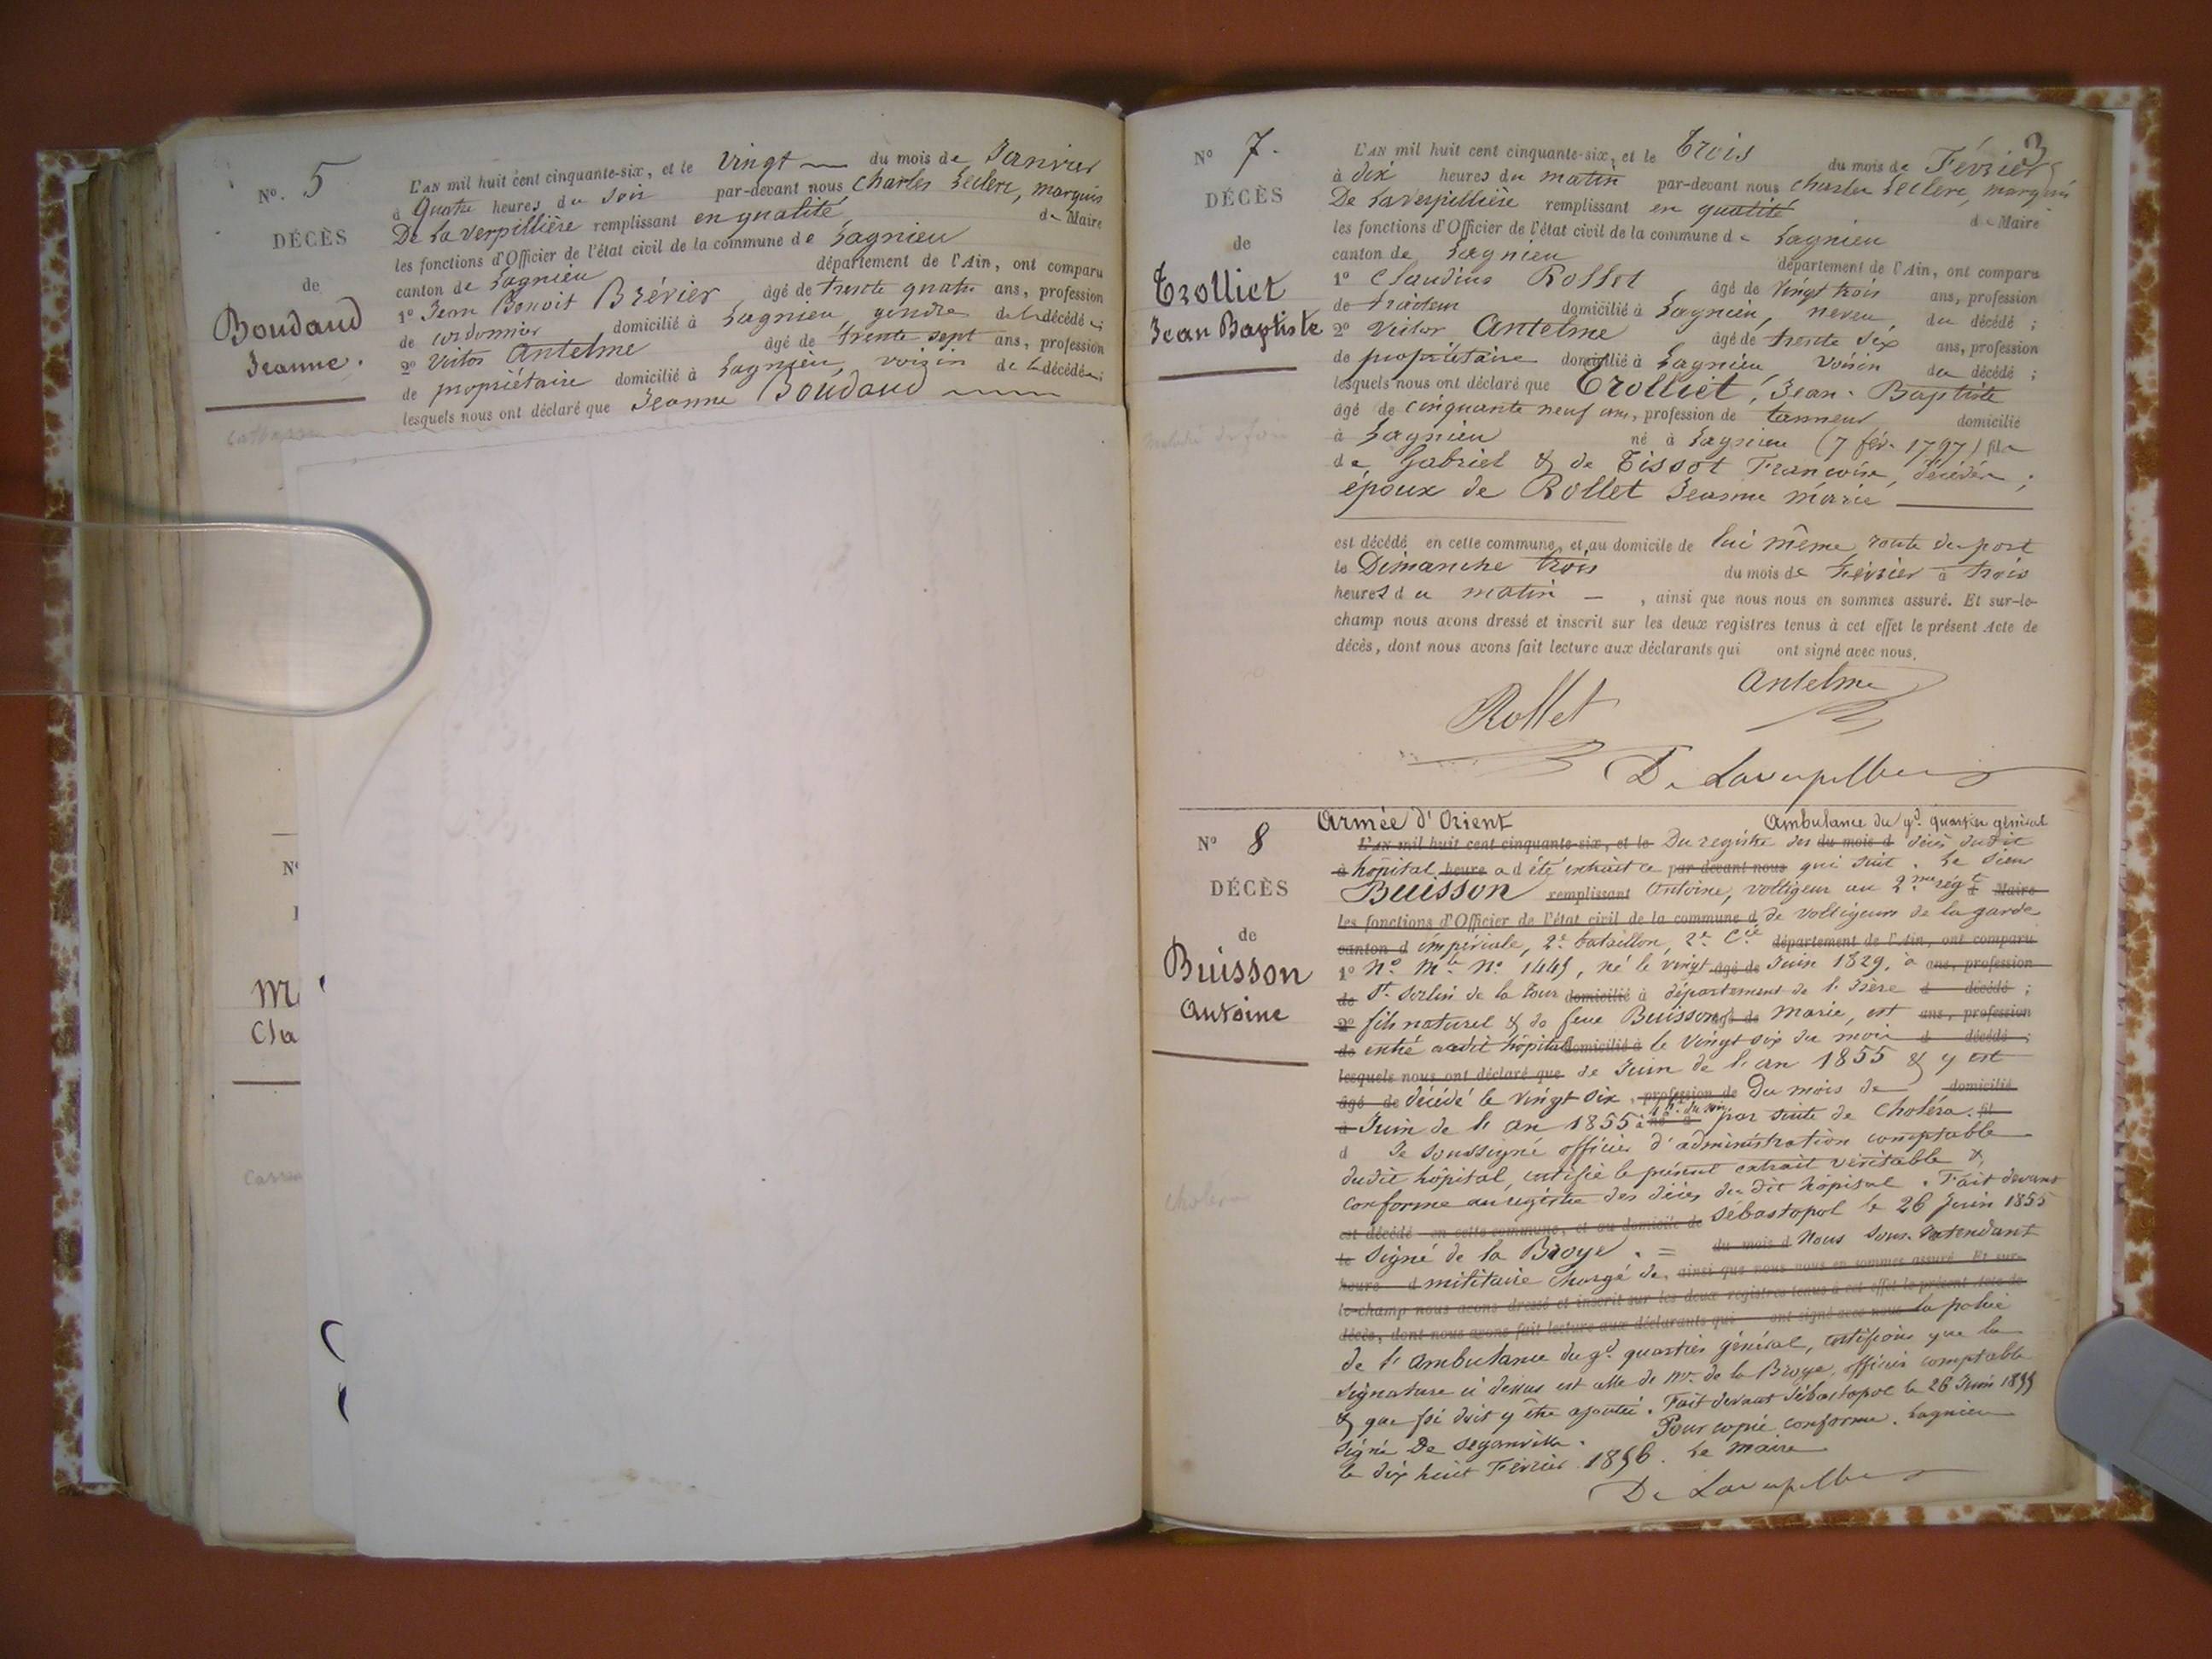 No. 5
DÉCÈS
de
Boudaud
Jeanne.
L'AN mil huit cent cinquante-six, et le Vingt du mois de Janvier
à Quatre heures du Soir par-devant nous Charles Leclerc, marquis
De Laverpillière remplissant en qualité de Maire
les fonctions d'Officier de l'état civil de la commune de Lagnieu
canton de Lagnieu département de l'Ain, ont comparu
1º Jean Benoit Brévier âgé de trente quatre ans, profession
de cordonnier domicilié à Lagnieu, gendre de la décédée;
2º Victor Antelme âgé de trente sept ans, profession
de propriétaire domicilié à Lagnieu, voisin de la décédée;
lesquels nous ont déclaré que Jeanne Boudaud
Nº
M
Cla
3
Nº 7.
DÉCÈS
de
Trolliet
Jean Baptiste
L'AN mil huit cent cinquante-six, et le Trois du mois de Février
à dix heures du matin par-devant nous Charles Leclerc, marquis
De Laverpillière remplissant en qualité de Maire
les fonctions d'Officier de l'état civil de la commune de Lagnieu
canton de Lagnieu département de l'Ain, ont comparu
1º Claudius Rollet âgé de Vingt trois ans, profession
de domicilié à Lagnieu, neveu du décédé;
2º Victor Antelme âgé de trente six ans, profession
de propriétaire domicilié à Lagnieu, Voisin du décédé;
lesquels nous ont déclaré que Trolliet, Jean-Baptiste
âgé de cinquante neuf ans, profession de tanneur domicilié
à Lagnieu né à Lagnieu (7 fév. 1797) fils
de Gabriel & de Tissot Françoise, décédés;
époux de Rollet Jeanne Marie
est décédé en cette commune, et au domicile de lui même, route du port
le Dimanche trois du mois de Février à trois
heures du matin, ainsi que nous nous en sommes assuré. Et sur-le-
champ nous avons dressé et inscrit sur les deux registres tenus à cet effet le présent Acte de
décès, dont nous avons fait lecture aux déclarants qui ont signé avec nous.
Antelme
Rollet
De Laverpillière
Nº 8
DÉCÈS
de
Buisson
Antoine
cholera
Armée d'Orient Ambulance du gd. quartier général
L'AN mil huit cent cinquante-six, et le Du registre des du mois d décès dudit
à hôpital heure a d été extrait ce par-devant nous qui suit. Le sieur
Buisson remplissant Antoine, voltigeur au 2me régt d Maire
les fonctions d'Officier de l'état civil de la commune d de voltigeurs de la garde
canton d impériale, 2e bataillon, 2e Cie département de l'Ain, ont comparu
1º Nº Mle Nº 1445, né le vingt âgé de Juin 1829, à ans, profession
de St. Sorlin de la Tour domicilié à département de l'Isère d décédé;
2º fils naturel & de feue Buisson âgé de Marie, est ans, profession
de entré audit hôpital domicilié à le Vingt six du mois d décédé;
lesquels nous ont déclaré que de Juin de l'an 1855 & y est
âgé de décédé le vingt six, profession de Du mois de domicilié
à Juin de l'an 1855 à 4 h. du soir né à par suite de Choléra. fil
d Je soussigné officier d'administration comptable
dudit hôpital, certifie le présent extrait véritable &
conforme au registre des décès du dit hôpital. Fait devant
est décédé en cette commune, et au domicile de Sébastopol le 26 Juin 1855
le Signé de la Broye. = du mois d Nous Sous-Intendant
heure d militaire Chargé de ainsi que nous nous en sommes assuré. Et sur-
le-champ nous avons dressé et inscrit sur les deux registres tenus à cet effet le présent Acte de
décès, dont nous avons fait lecture aux déclarants qui ont signé avec nous la police
de l'ambulance du gd. quartier général, certifions que la
signature ci dessus est celle de Mr. de la Broye, officier comptable
& que foi doit y être ajoutée. Fait devant Sébastopol le 26 Juin 1855
Signé De Seganville. Pour copie conforme. Lagnieu
le dix huit Février 1856. Le Maire
De Laverpillière